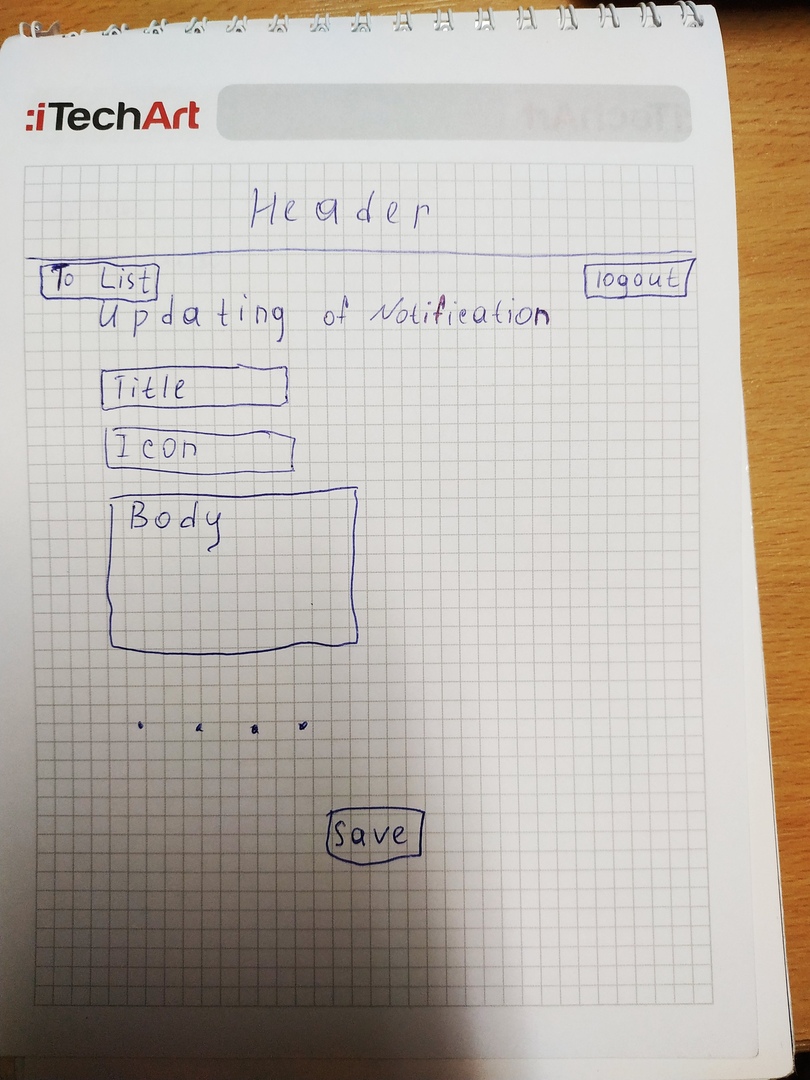 :iTechArt
Header
To List
logout
Updating of Notification
Title
Icon
Body
Save